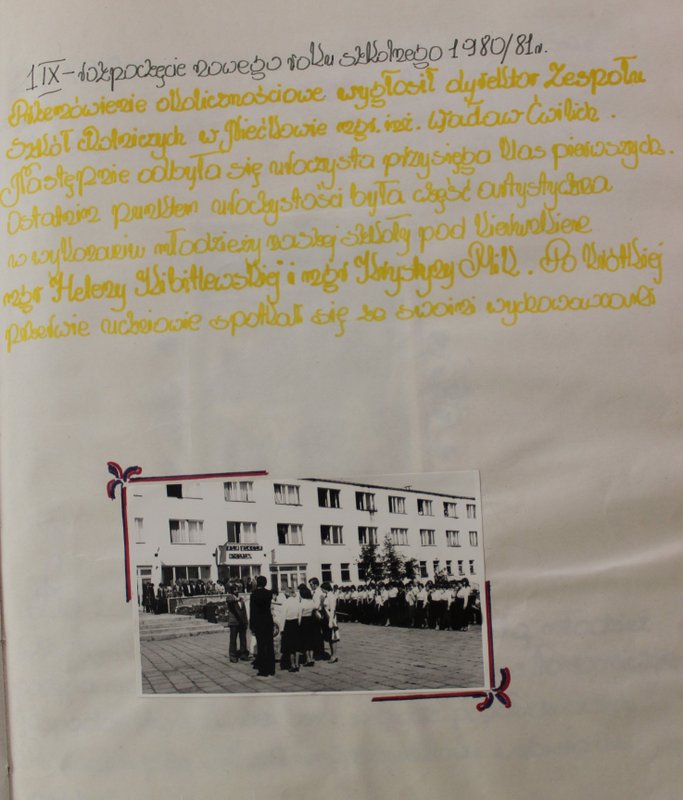 1 IX - rozpoczęcie nowego roku szkolnego 1980/81r.
Przemówienie okolicznościowe wygłosił dyrektor Zespołu
Szkół Rolniczych w Miećkowie mgr. inż. Wacław Ćwilich.
Następnie odbyła się uroczysta przysięga klas pierwszych.
Ostatnim punktem uroczystości była część artystyczna
w wykonaniu młodzieży naszej szkoły pod kierunkiem
mgr Heleny Kibitlewskiej i mgr Krystyny Mik. Po krótkiej
przerwie uczniowie spotkali się ze swoimi wychowawcami